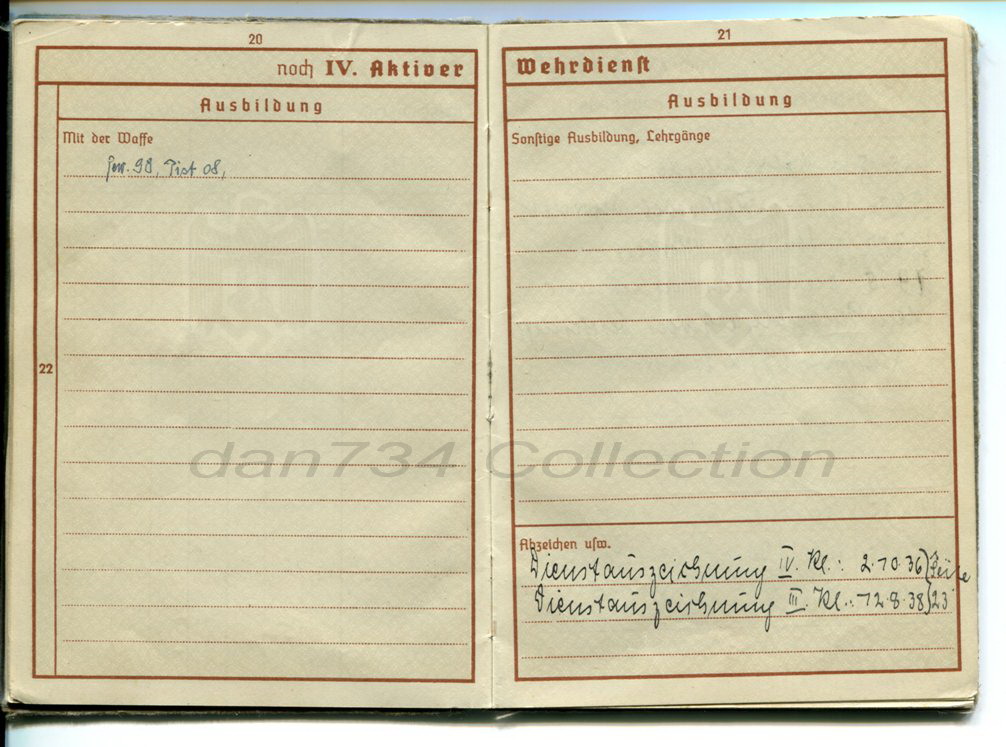 20
noch IV. Aktiver
Ausbildung
Mit der Waffe
Gew. 98, Pist 08,
22
21
Wehrdienst
Ausbildung
Sonstige Ausbildung, Lehrgänge
Abzeichen usw.
Dienstauszeichnung IV. Kl.: 2.10.36 } Seite
Dienstauszeichnung III. Kl.: 12.8.38 } 23
dan734 Collection